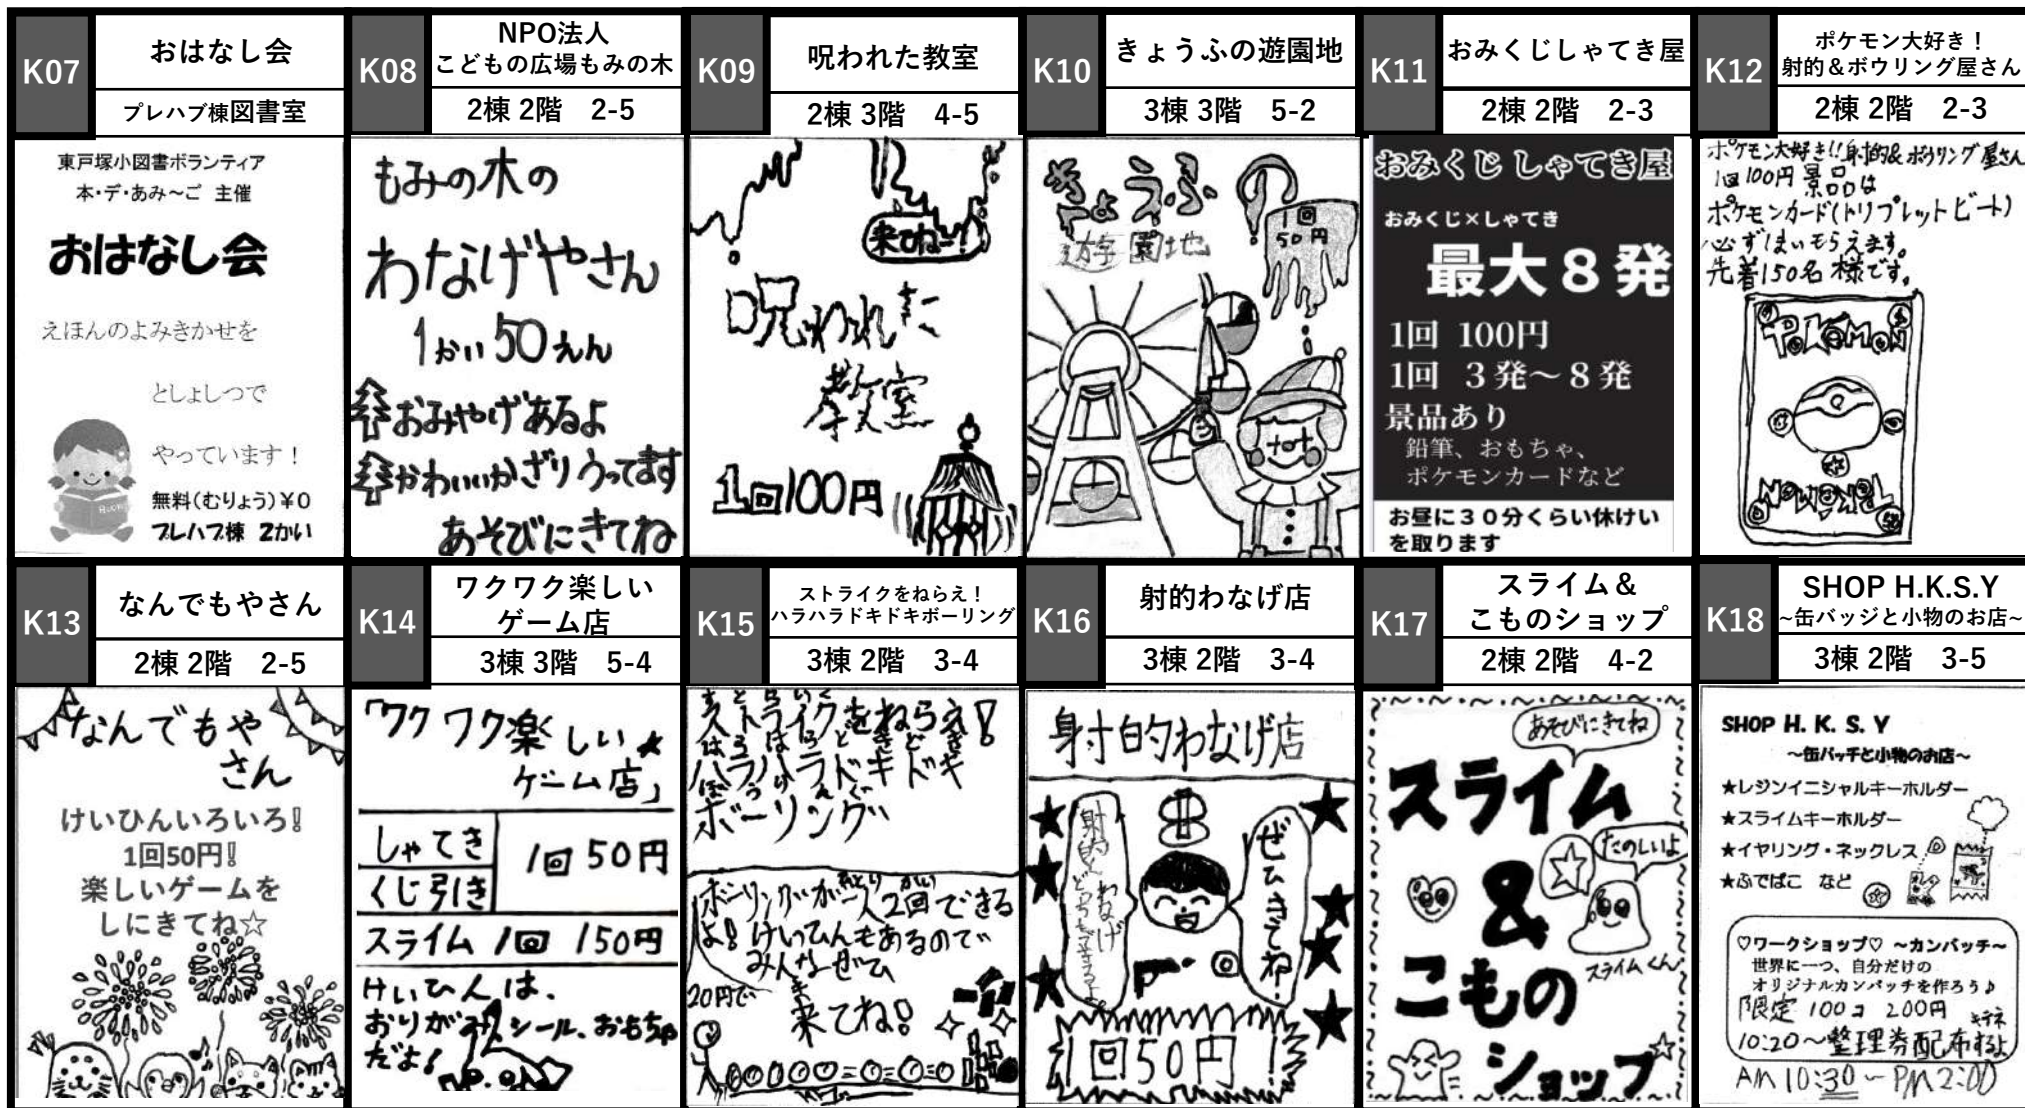 K07
おはなし会
プレハブ棟図書室
東戸塚小図書ボランティア
本・デ・あみ～ご 主催
おはなし会
えほんのよみきかせを
としょしつで
やっています！
無料(むりょう)¥0
プレハブ棟 2かい
K08
NPO法人
こどもの広場もみの木
2棟 2階 2-5
もみの木の
わなげやさん
1かい50えん
おみやげあるよ
かわいいかざりうってます
あそびにきてね
K09
呪われた教室
2棟 3階 4-5
来てねー!
呪われた
教室
1回100円
K10
きょうふの遊園地
3棟 3階 5-2
きょうふの
遊園地
1回
50円
K11
おみくじしゃてき屋
2棟 2階 2-3
おみくじ しゃてき屋
おみくじ×しゃてき
最大８発
1回 100円
1回 ３発～８発
景品あり
鉛筆、おもちゃ、
ポケモンカードなど
お昼に３０分くらい休けい
を取ります
K12
ポケモン大好き！
射的＆ボウリング屋さん
2棟 2階 2-3
ポケモン大好き!!射的&ボウリング屋さん
1回100円 景品は
ポケモンカード(トリプレットビート)
必ず1まいもらえます。
先着150名様です。
POKéMON
K13
なんでもやさん
2棟 2階 2-5
なんでもや
さん
けいひんいろいろ!
1回50円!
楽しいゲームを
しにきてね☆
K14
ワクワク楽しい
ゲーム店
3棟 3階 5-4
「ワクワク楽しい★
ゲーム店」
しゃてき
くじ引き
1回50円
スライム 1回 150円
けいひんは、
おりがみ、シール、おもちゃ
だよ!
K15
ストライクをねらえ！
ハラハラドキドキボーリング
3棟 2階 3-4
ストライクをねらえ!
ハラハラドキドキ
ボーリング
ボーリングが一人2回できる
よ!けいひんもあるので
みんなぜひ
20円で
来てね!
K16
射的わなげ店
3棟 2階 3-4
射的わなげ店
射的とわなげ
どっちもできるよ。
ぜひきてね!
1回50円
K17
スライム＆
こものショップ
2棟 2階 4-2
あそびにきてね
スライム
&
たのしいよ
スライムくん
こもの
ショップ
K18
SHOP H.K.S.Y
~缶バッジと小物のお店~
3棟 2階 3-5
SHOP H. K. S. Y
～缶バッチと小物のお店～
★レジンイニシャルキーホルダー
★スライムキーホルダー
★イヤリング・ネックレス
★ふでばこ など
♡ワークショップ♡ ～カンバッチ～
世界に一つ、自分だけの
オリジナルカンバッチを作ろう♪
限定 100コ 200円
キテネ
10:20～整理券配布するよ
AM 10:30 ～ PM 2:00